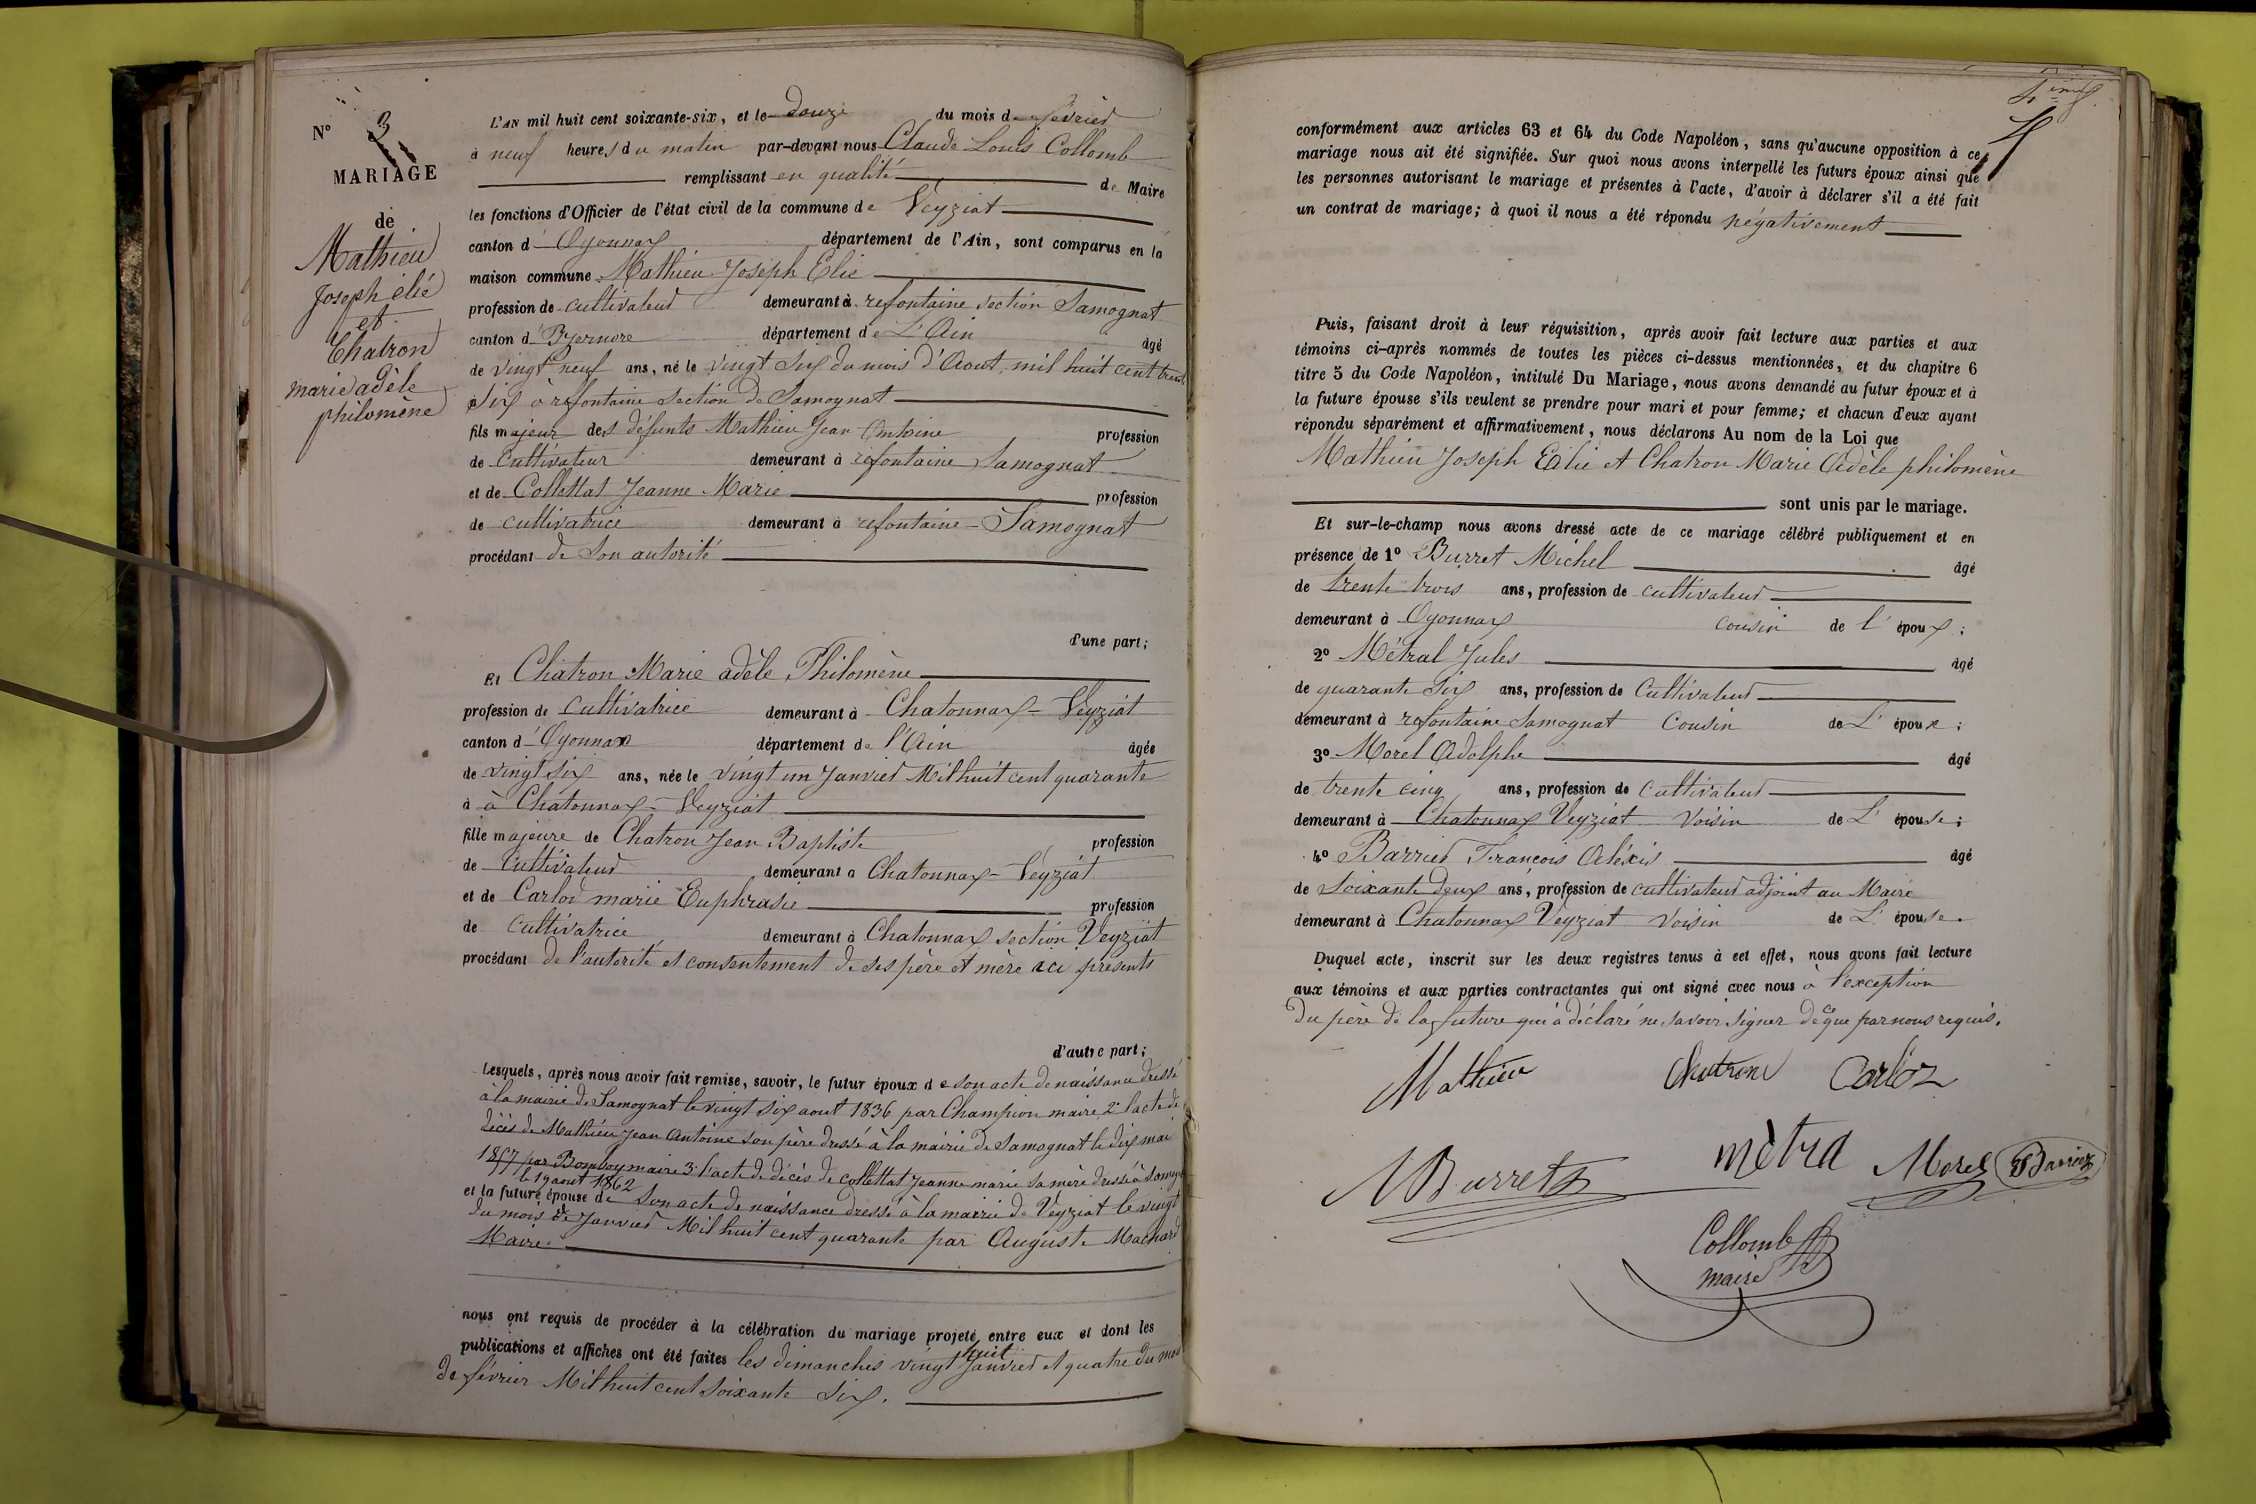 N° 3
MARIAGE
de
Mathieu
Joseph élie
et
Chatron
marie adèle
philomène
L'AN mil huit cent soixante-six, et le douze du mois de février
à neuf heures du matin par-devant nous Claude Louis Collomb
remplissant en qualité de Maire
les fonctions d'Officier de l'état civil de la commune de Veyziat
canton d' Oyonnax département de l'Ain, sont comparus en la
maison commune Mathieu Joseph Elie
profession de cultivateur demeurant à refontaine section Samognat
canton d' département de L'Ain âgé
de vingt neuf ans, né le vingt six du mois d'Aout, mil huit cent trente
six à refontaine section de Samognat
fils majeur des défunts Mathieu Jean Antoine profession
de cultivateur demeurant à refontaine Samognat
et de Collettat Jeanne Marie profession
de cultivatrice demeurant à refontaine - Samognat
procédant de son autorité
d'une part;
Et Chatron Marie adèle Philomène
profession de cultivatrice demeurant à Chatonnax - Veyziat
canton d' Oyonnax département de l'Ain âgée
de vingt six ans, née le vingt un Janvier Mil huit cent quarante
à à Chatonnax - Veyziat
fille majeure de Chatron Jean Baptiste profession
de cultivateur demeurant à Chatonnax - Veyziat
et de Carloz marie Euphrasie profession
de cultivatrice demeurant à Chatonnax section Veyziat
procédant de l'autorité et consentement de ses père et mère ici présents
d'autre part;
Lesquels, après nous avoir fait remise, savoir, le futur époux de son acte de naissance dressé
à la mairie de Samognat le vingt six aout 1836 par Champion maire 2° l'acte de
décès de Mathieu Jean Antoine son père dressé à la mairie de Samognat le dix mai
1857 par maire 3° l'acte de décès de Collettat Jeanne marie sa mère dressé à
le 19 aout 1862
et la future épouse de son acte de naissance dressé à la mairie de Veyziat le vingt
du mois de Janvier Mil huit cent quarante par Auguste
Maire.
nous ont requis de procéder à la célébration du mariage projeté entre eux et dont les
publications et affiches ont été faites les dimanches vingt huit Janvier et quatre du mois
de février Mil huit cent soixante six.
conformément aux articles 63 et 64 du Code Napoléon, sans qu'aucune opposition à ce
mariage nous ait été signifiée. Sur quoi nous avons interpellé les futurs époux ainsi que
les personnes autorisant le mariage et présentes à l'acte, d'avoir à déclarer s'il a été fait
un contrat de mariage; à quoi il nous a été répondu négativement
Puis, faisant droit à leur réquisition, après avoir fait lecture aux parties et aux
témoins ci-après nommés de toutes les pièces ci-dessus mentionnées, et du chapitre 6
titre 5 du Code Napoléon, intitulé Du Mariage, nous avons demandé au futur époux et à
la future épouse s'ils veulent se prendre pour mari et pour femme; et chacun d'eux ayant
répondu séparément et affirmativement, nous déclarons Au nom de la Loi que
Mathieu Joseph Elie et Chatron Marie Adèle philomène
sont unis par le mariage.
Et sur-le-champ nous avons dressé acte de ce mariage célébré publiquement et en
présence de 1° Burret Michel âgé
de trente trois ans, profession de cultivateur
demeurant à Oyonnax cousin de l' époux;
2° Métral Jules âgé
de quarante six ans, profession de cultivateur
demeurant à refontaine Samognat Cousin de L' époux;
3° Morel Adolphe âgé
de trente cinq ans, profession de cultivateur
demeurant à Chatonnax Veyziat Voisin de L' épouse;
4° Barrier François Aléxis âgé
de Soixante deux ans, profession de cultivateur adjoint au Maire
demeurant à Chatonnax Veyziat Voisin de L' épouse.
Duquel acte, inscrit sur les deux registres tenus à cet effet, nous avons fait lecture
aux témoins et aux parties contractantes qui ont signé avec nous à l'exception
du père de la future qui a déclaré ne savoir signer de ce que par nous requis.
Mathieu Chatron Carloz
MBurret mètra Morel Barrier
Collomb
maire